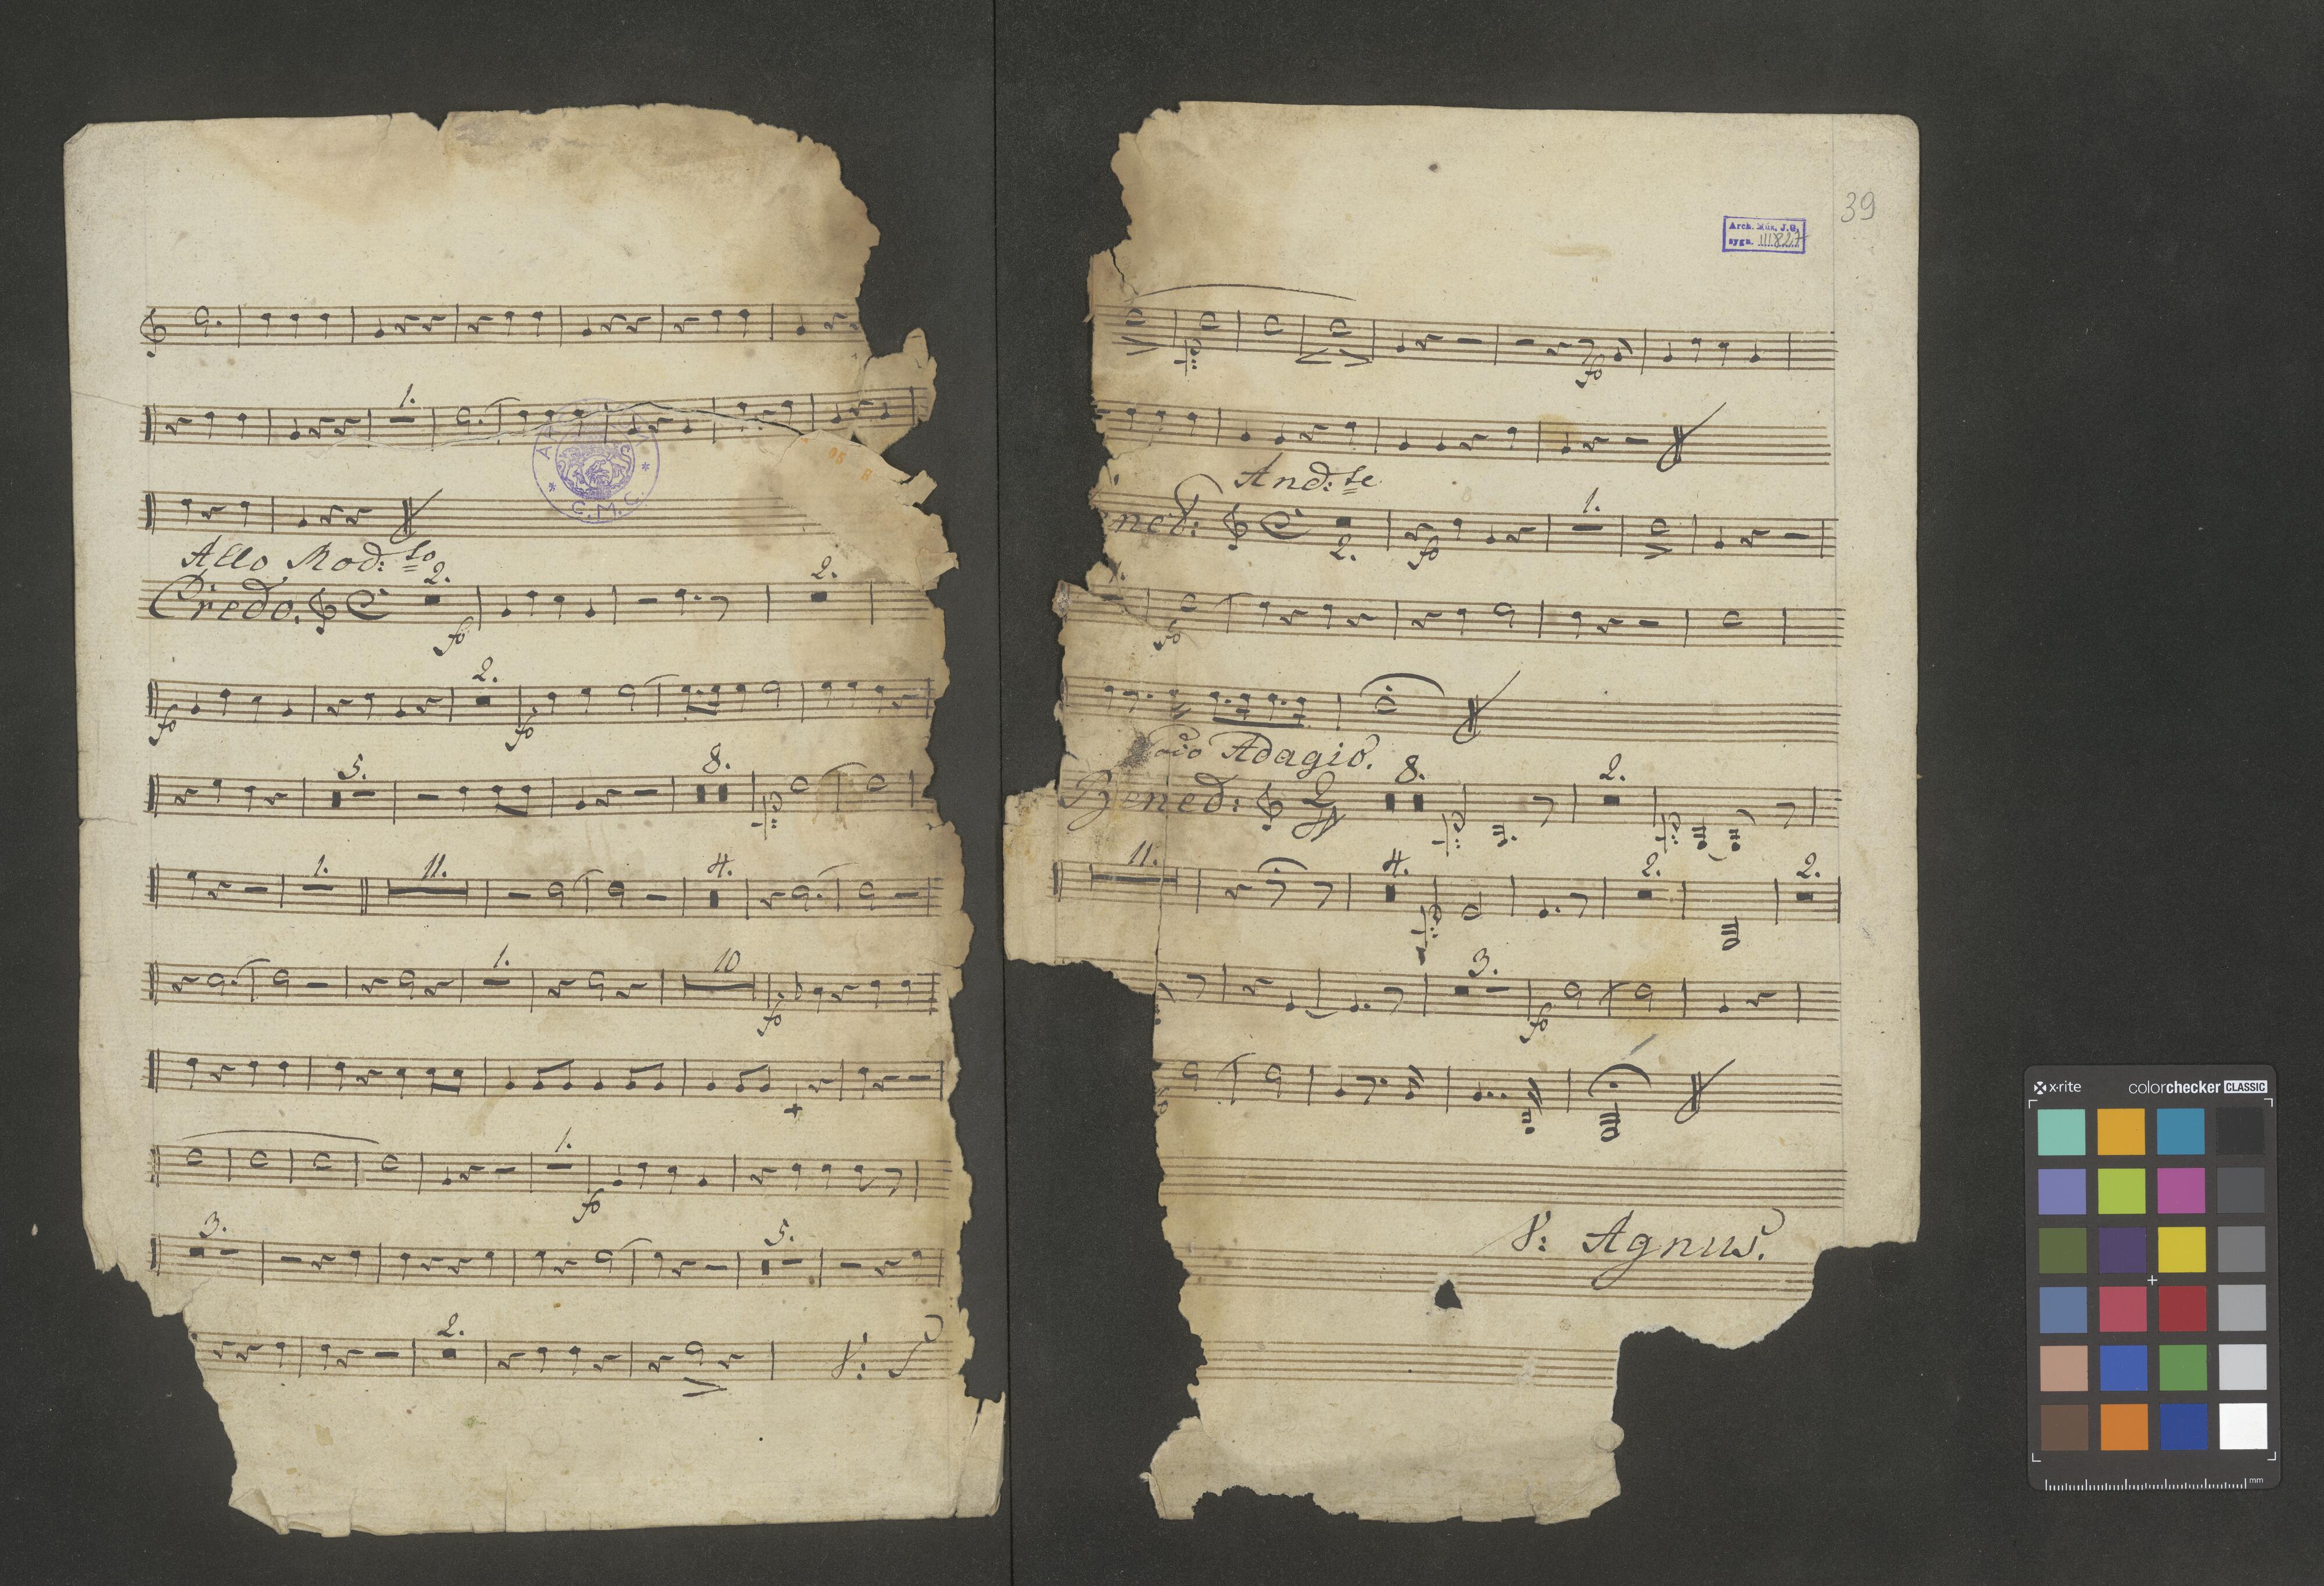 1.
C.M.C.
Allo Mod: to
2.
Credo.
2.
fo
2.
fo
fo
5.
8.
p:
1.
11.
4.
1.
10
fo
1.
fo
3.
5.
2.
V: S
39
Arch. Muz. J.G.
sygn. III.827
p:
fo
And: te
ned:
1.
2.
fo
fo
Adagio.
Bened:
2
8.
2.
p:
p:
11.
4.
2.
2.
p:
3.
fo
V: Agnus.
x-rite
colorchecker CLASSIC
mm